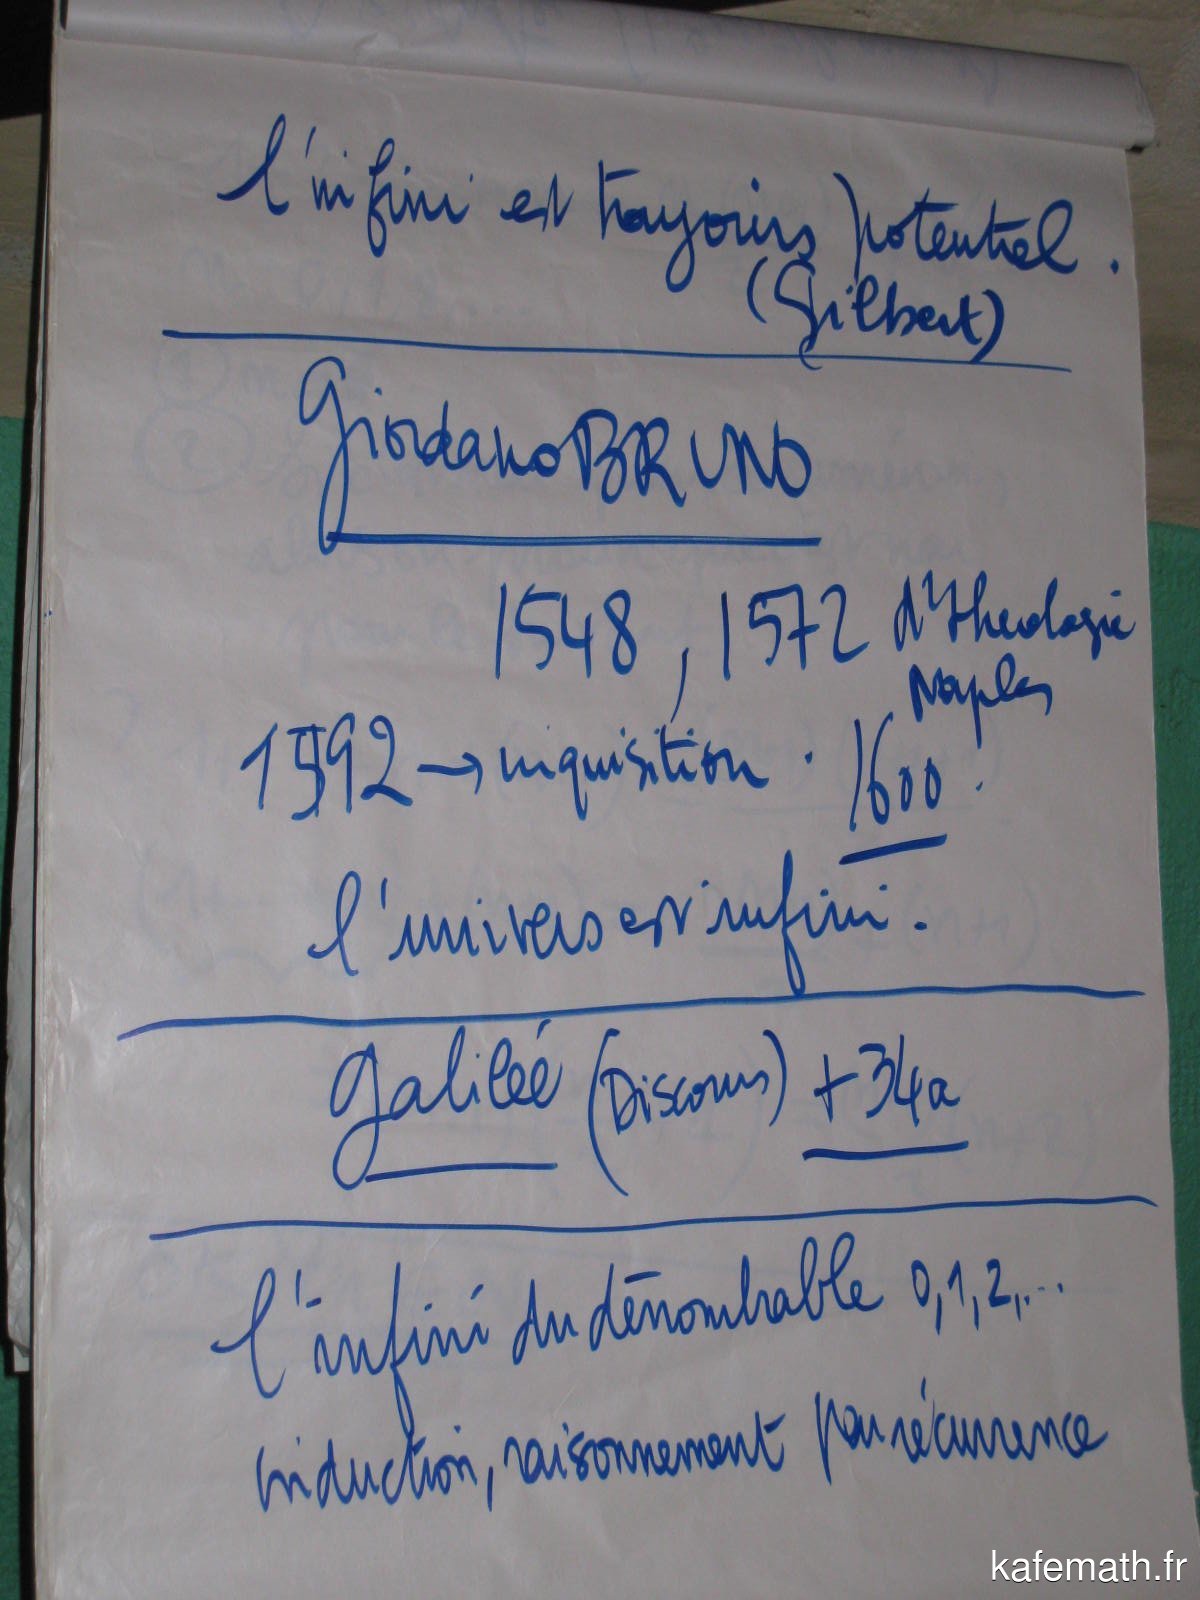 l'infini est toujours potentiel.
(Gilbert)
Giordano BRUNO
1548, 1572 dr theologie
Naples
1592 → inquisition. 1600.
l'univers est infini.
Galilée (Discours) + 34a
l'infini du dénombrable 0,1,2,...
induction, raisonnement par récurrence
kafemath.fr